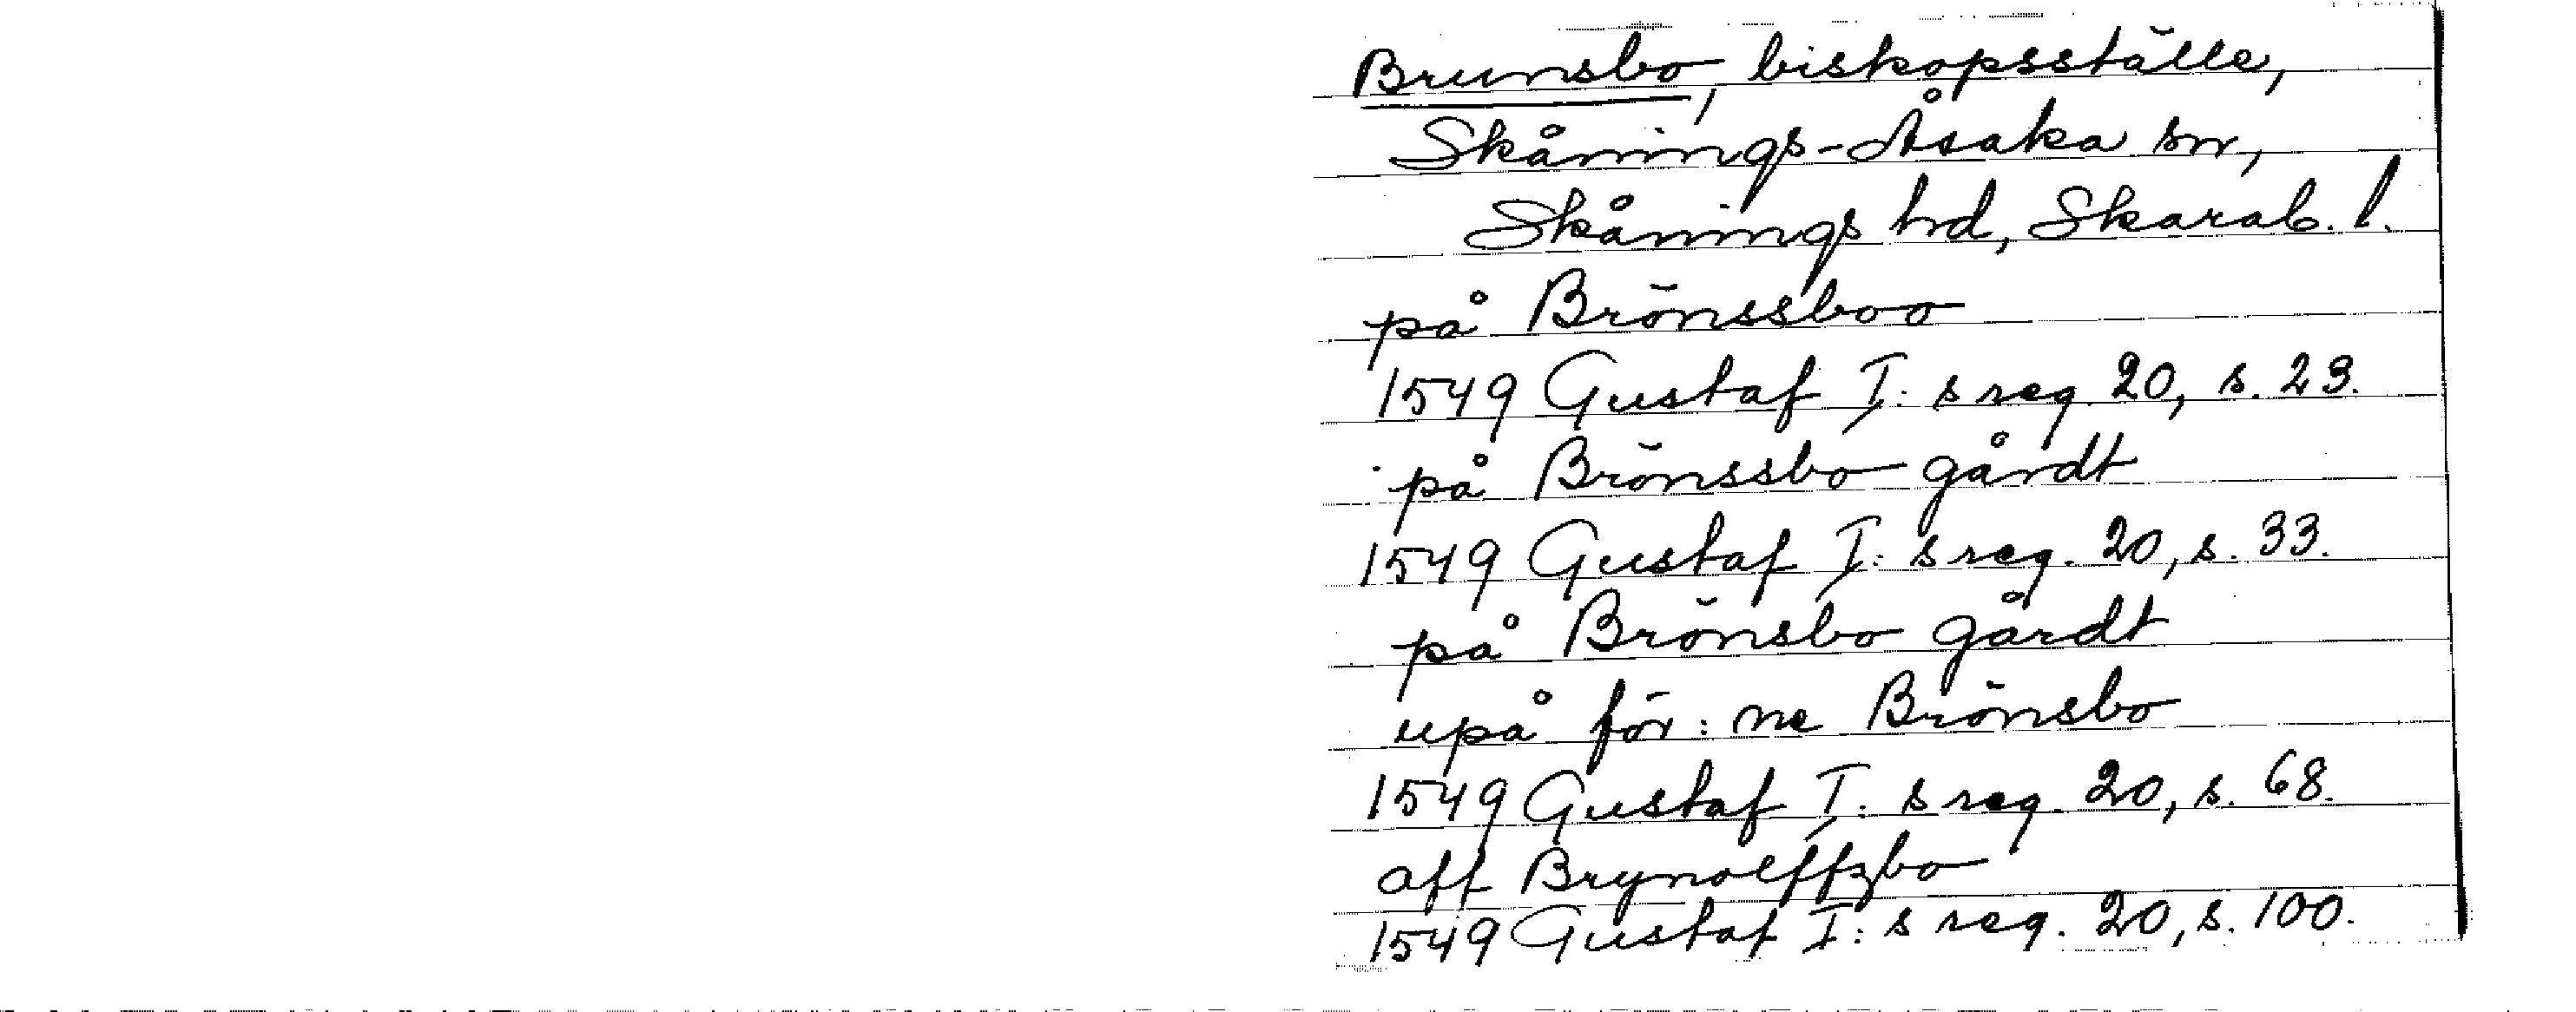 Brunsbo, biskopsställe,
Skånings-Åsaka sn,
Skånings hd, Skarab. l.
på Brönssboo
1549 Gustaf I: s reg. 20, s. 23.
på Brönssbo gårdt
1549 Gustaf I: s reg. 20, s. 33.
på Brönsbo gårdt
upå för: ne Brönsbo
1549 Gustaf I: s reg. 20, s. 68.
aff Brynolffzbo
1549 Gustaf I: s reg. 20, s. 100.